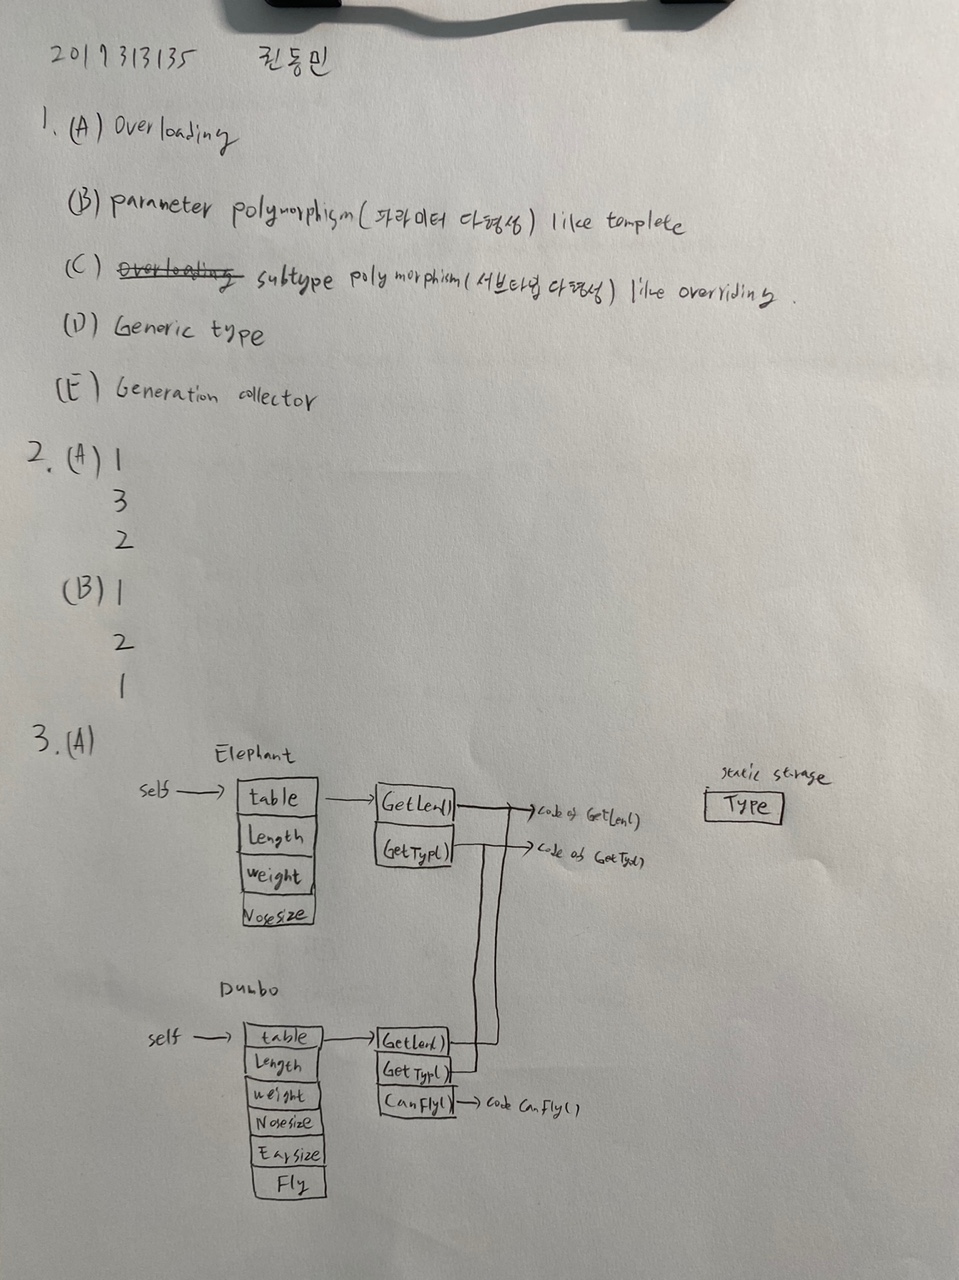 2017313135 권동민
1. (A) Overloading
(B) parameter polymorphism(파라미터 다형성) like templete
(C) overloading subtype polymorphism(서브타입 다형성) like overriding.
(D) Generic type
(E) Generation collector
2. (A) 1
3
2
(B) 1
2
1
3. (A)
Elephant
self
table
Length
weight
Nosesize
GetLen()
GetTyp()
code of GetLen()
code of GetTyp()
static storage
Type
Dumbo
self
table
Length
weight
Nosesize
Earsize
Fly
GetLen()
GetTyp()
CanFly()
code CanFly()